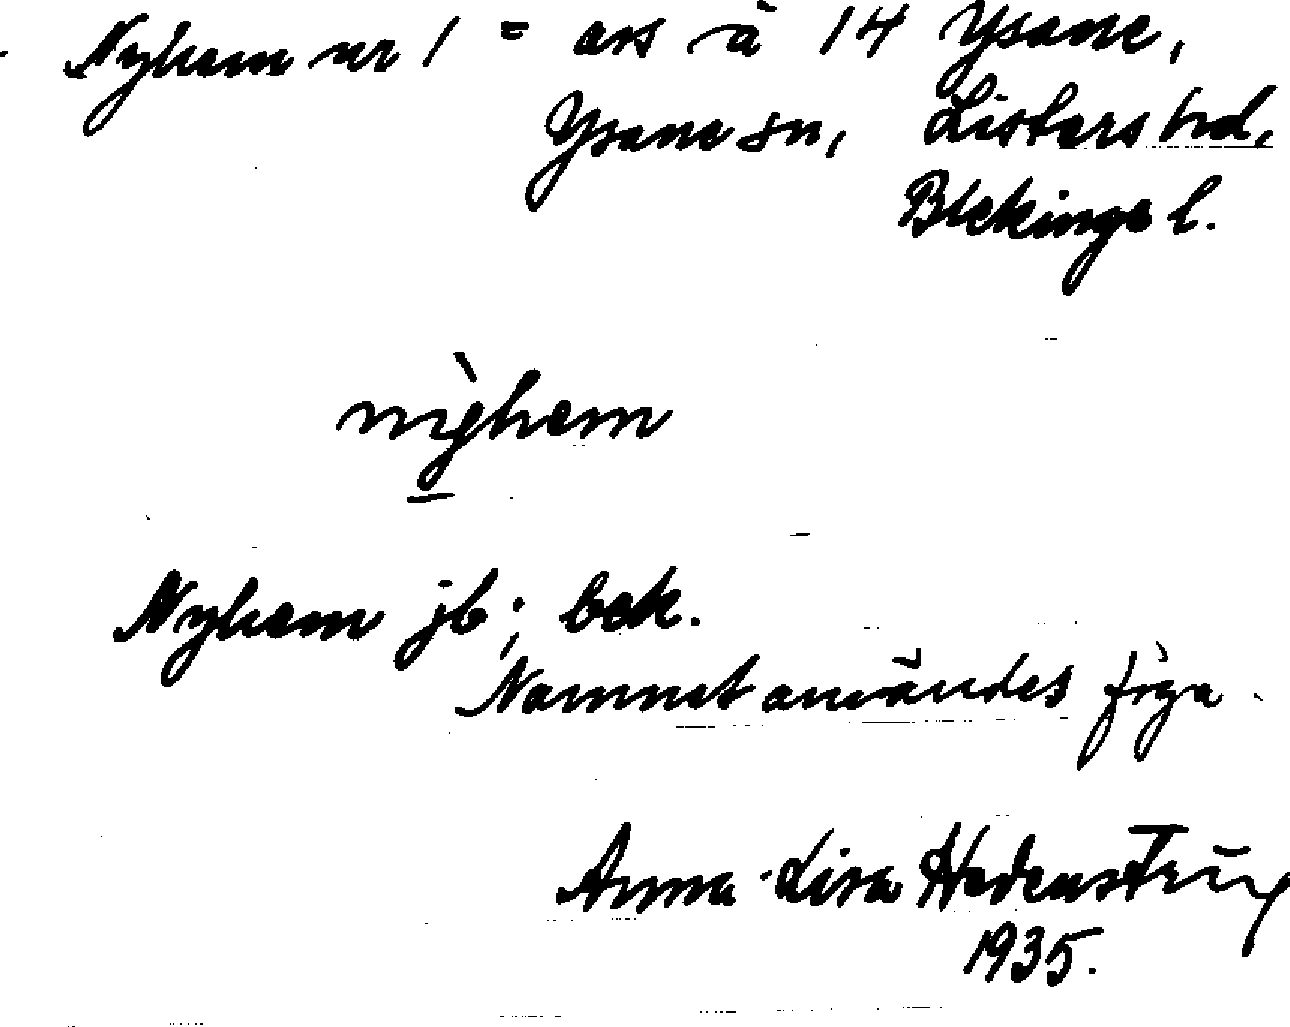 Nyhem nr 1 = avs å 14 Ysane,
Ysane sn, Listers hd,
Blekinge l.
nỳhem
Nyhem jb; bek.
Namnet användes föga
Anna-Lisa Hedenstrüg
1935.